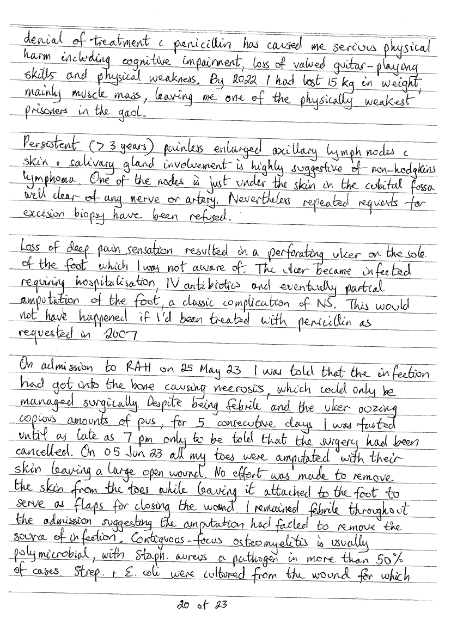 denial of treatment c penicillin has caused me serious physical
harm including cognitive impairment, loss of valued guitar-playing
skills and physical weakness. By 2022 I had lost 15 kg in weight,
mainly muscle mass, leaving me one of the physically weakest
prisoners in the gaol.
Persistent (>3 years) painless enlarged axillary lymph nodes c
skin & salivary gland involvement is highly suggestive of non-hodgkins
lymphoma. One of the nodes is just under the skin in the cubital fossa
well clear of any nerve or artery. Nevertheless repeated requests for
excision biopsy have been refused.
Loss of deep pain sensation resulted in a perforating ulcer on the sole
of the foot which I was not aware of. The ulcer became infected
requiring hospitalisation, IV antibiotics and eventually partial
amputation of the foot, a classic complication of NS. This would
not have happened if I'd been treated with penicillin as
requested in 2007
On admission to RAH on 25 May 23 I was told that the infection
had got into the bone causing necrosis, which could only be
managed surgically Despite being febrile and the ulcer oozing
copious amounts of pus, for 5 consecutive days I was fasted
until as late as 7 pm only to be told that the surgery had been
cancelled. On 05 Jun 23 all my toes were amputated with their
skin leaving a large open wound. No effort was made to remove
the skin from the toes while leaving it attached to the foot to
serve as flaps for closing the wound I remained febrile throughout
the admission suggesting the amputation had failed to remove the
source of infection. Contiguous-focus osteomyelitis is usually
polymicrobial, with Staph. aureus a pathogen in more than 50%
of cases Strep. & E. coli were cultured from the wound for which
20 of 23